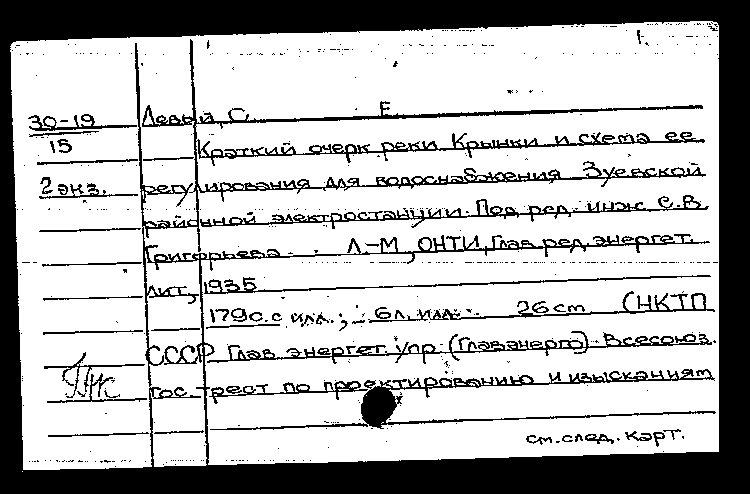 1.
30-19 Левый, С. Е.
15 Краткий очерк реки Крынки и схема ее
2 экз. регулирования для водоснабжения Зуевской
районной электростанции. Под ред. инж. С.В.
Григорьева. Л.-М., ОНТИ, Глав. ред. энергет.
лит., 1935
179 с. с илл.; 6 л. илл. 26 cm (НКТП
СССР Глав. энергет. упр. (Главэнерго). Всесоюз.
гос. трест по проектированию и изысканиям
см. след. карт.